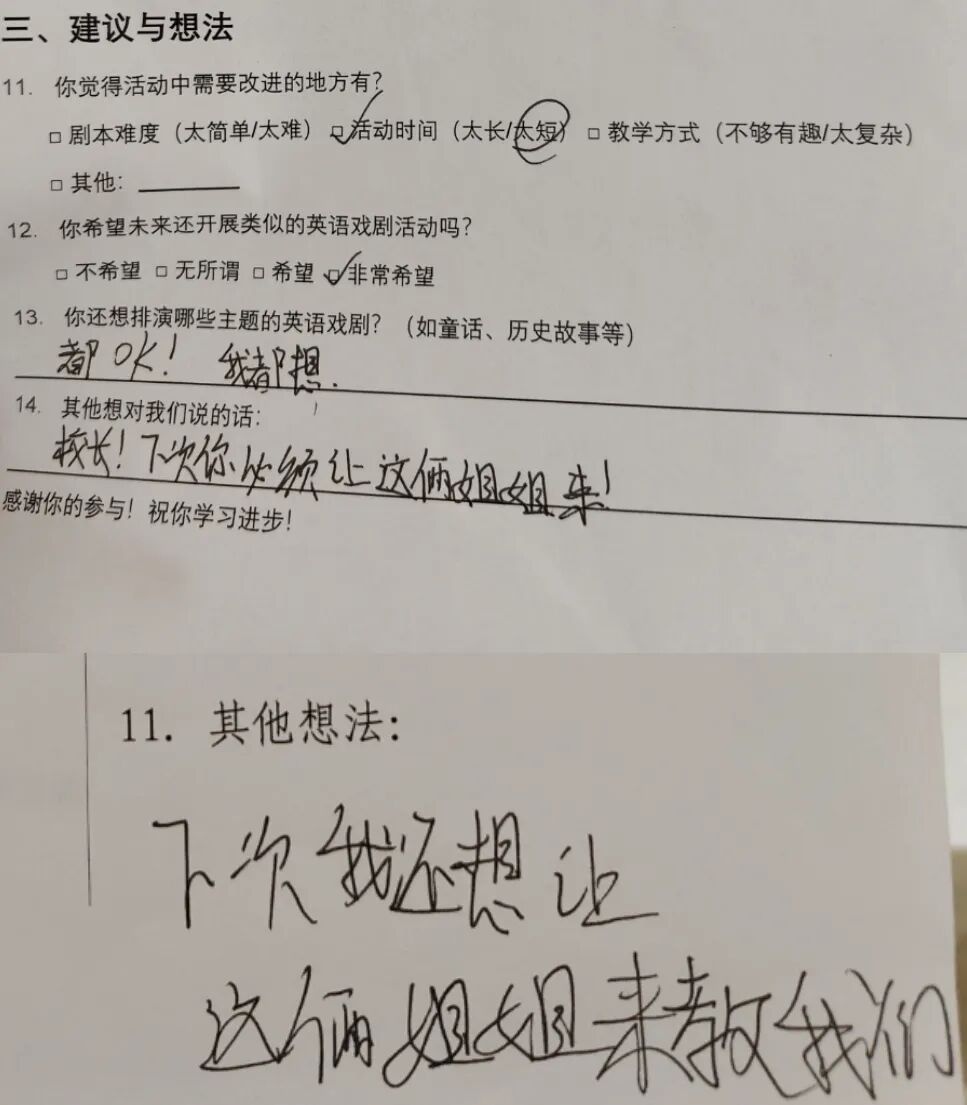 三、建议与想法
11. 你觉得活动中需要改进的地方有？
□ 剧本难度（太简单/太难）☑ 活动时间（太长/太短）□ 教学方式（不够有趣/太复杂）
□ 其他：______
12. 你希望未来还开展类似的英语戏剧活动吗？
□ 不希望 □ 无所谓 □ 希望 ☑ 非常希望
13. 你还想排演哪些主题的英语戏剧？（如童话、历史故事等）
都OK！ 我都想.
14. 其他想对我们说的话：
校长！下次你必须让这俩姐姐来！
感谢你的参与！祝你学习进步！
11. 其他想法：
下次我还想让
这俩姐姐来教我们